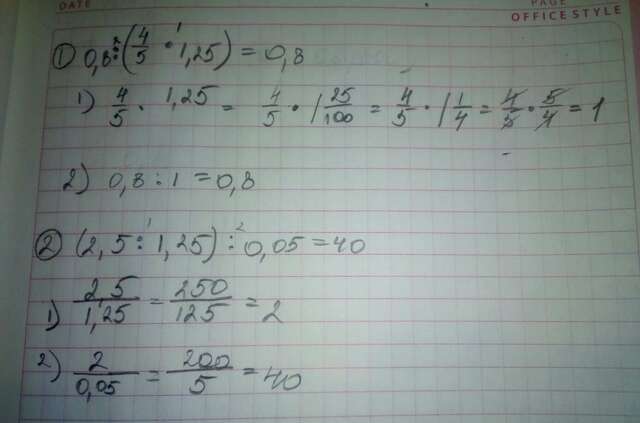 DATE PAGE
OFFICE STYLE
① 0,8 :² (4/5 ·¹ 1,25) = 0,8
1) 4/5 · 1,25 = 4/5 · 1 25/100 = 4/5 · 1 1/4 = 4/5 · 5/4 = 1
2) 0,8 : 1 = 0,8
② (2,5 :¹ 1,25) :² 0,05 = 40
1) 2,5/1,25 = 250/125 = 2
2) 2/0,05 = 200/5 = 40